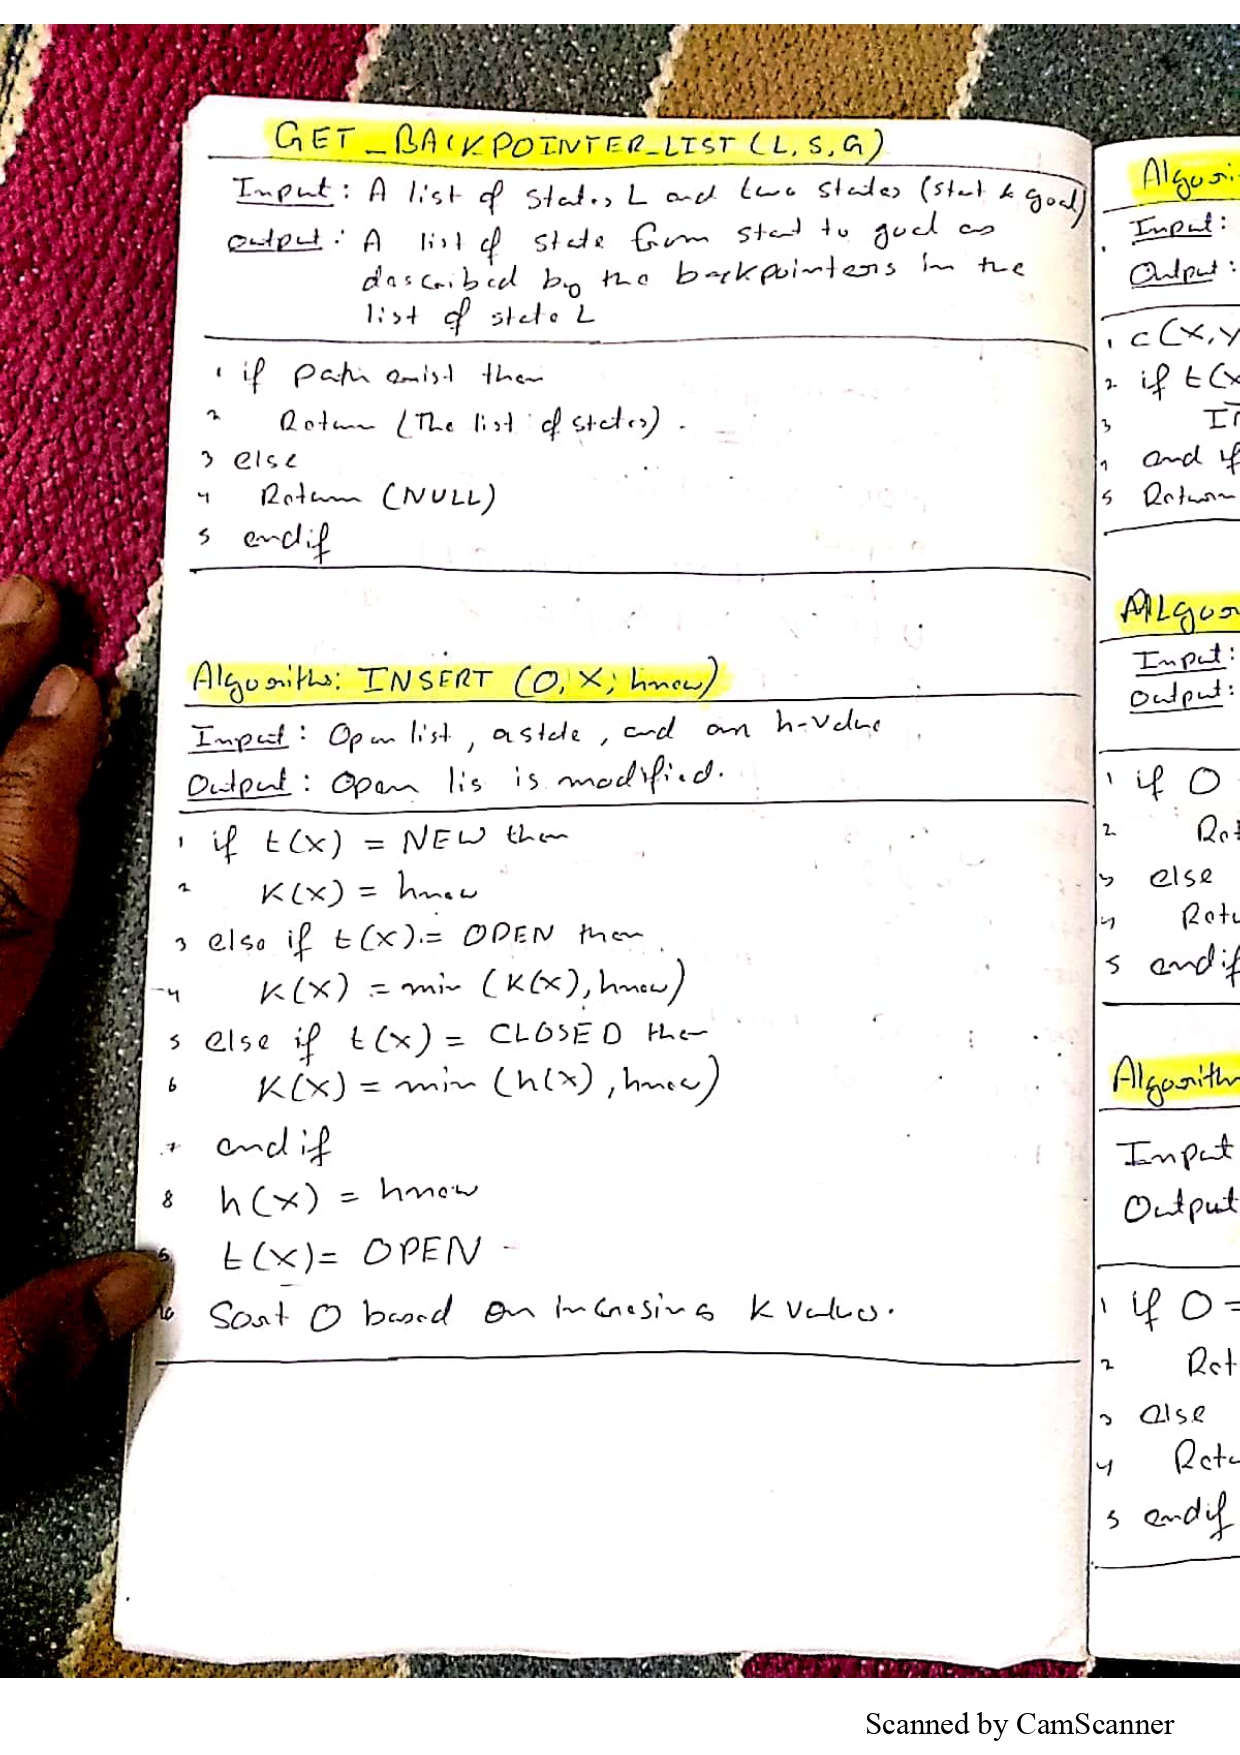 GET_BACKPOINTER_LIST (L, S, G)
Input : A list of states L and two states (start & goal)
Output : A list of state from start to goal as
described by the backpointers in the
list of state L
1 if path exist then
2 Return (The list of states).
3 else
4 Return (NULL)
5 endif
Algorithm: INSERT (O, X, hnew)
Input : Open list, a state, and an h-value
Output : Open lis is modified.
1 if t(x) = NEW then
2 K(X) = hnew
3 else if t(x) = OPEN then
4 K(X) = min (K(X), hnew)
5 else if t(x) = CLOSED then
6 K(X) = min (h(x), hnew)
7 endif
8 h(x) = hnew
9 t(x) = OPEN
10 Sort O based on increasing K values.
Algori
Input :
Output :
1 c(X, Y
2 if t(x
3 IN
4 end if
5 Return
ALgor
Input :
Output :
1 if O
2 Ret
3 else
4 Retu
5 endif
Algorithm
Input
Output
1 if O =
2 Ret
3 else
4 Retu
5 endif
Scanned by CamScanner